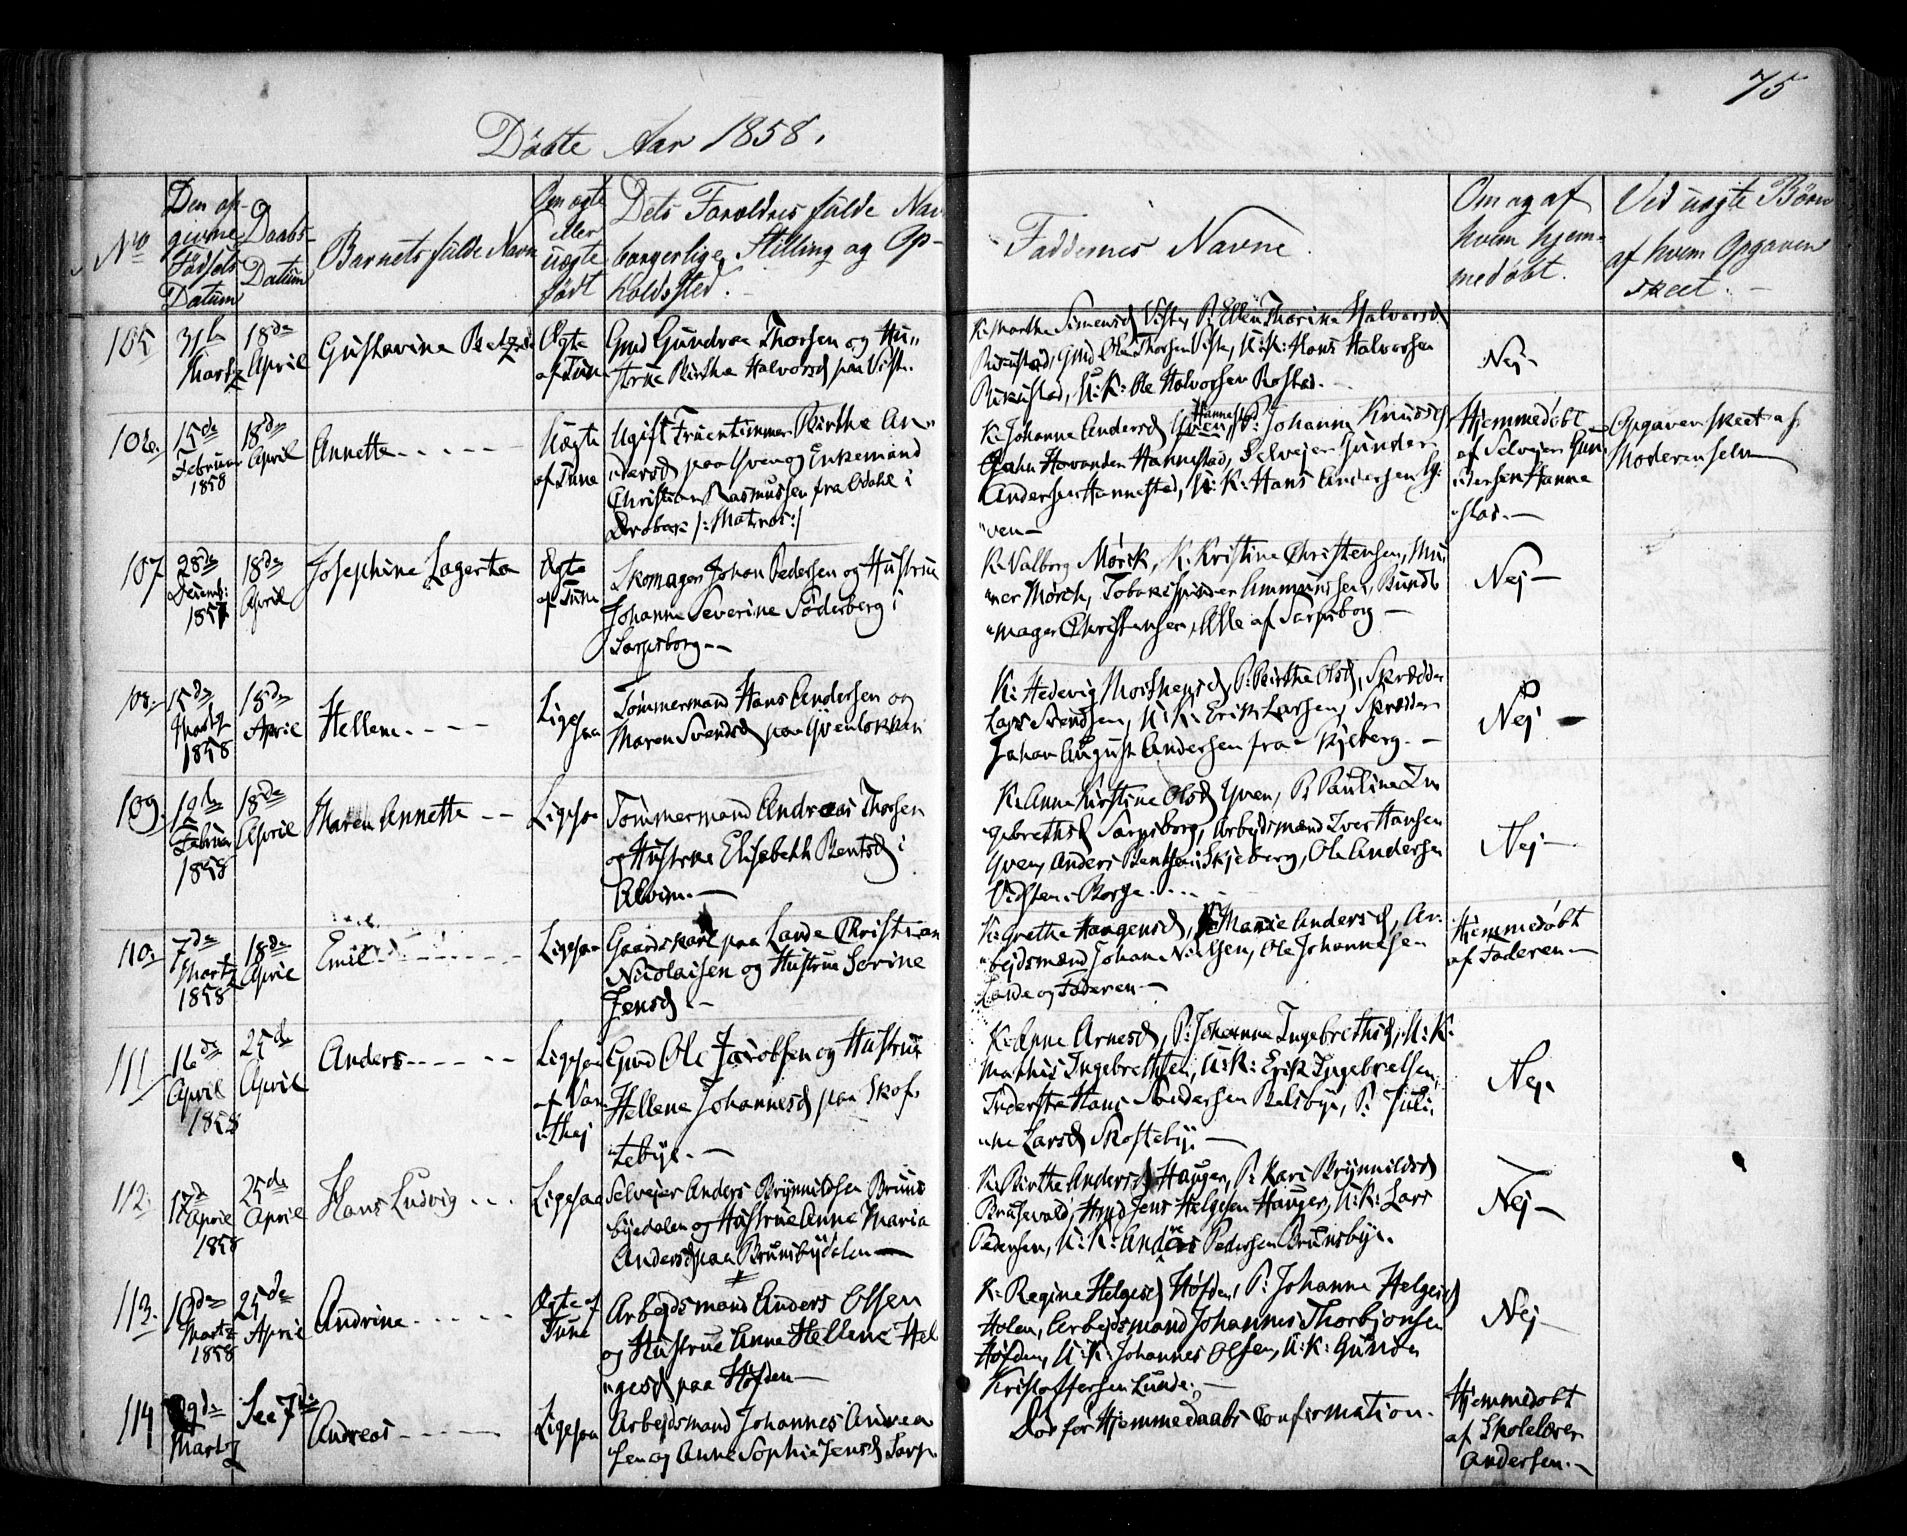 75
Döbte Aar 1858.
No
Den op-
givne
Födsels
Datum
Daabs-
Datum
Barnets fulde Navn
Om ægte
eller
uægte
födt
Dets Forældres fulde Nav
borgerlige Stilling og Op-
holdssted.
Faddernes Navne.
Om og af
hvem hjem-
medöbt.
Ved uægte Börn
af hvem Opgaven
skeet.
105
31te
Martz
18de
April
Gustavine
Ægte
af Tune
Gmd Gundroe Thorsen og Hu-
strue Birthe Halvorsd paa Viste.
K: Marthe Simensd Viste, P. Ellen Thorine Halvorsd
Gmd Ole Thorsen Viste, U:K: Hans Halvorsen
U:K: Ole Halvorsen
Nej-
106.
15de
Februar
1858
18de
April
Annette
Uægte
af Tune
Ugift Fruentimmer Birthe An-
dersd paa Yven og Enkemand
Christian Rasmussen fra Odahl i
Dröbak /: Matros :/
Hannestad
K: Johanne Andersd Yven, P: Johanne Knudsd
Hannestad, Selvejer Gunder
Andersen Hannestad, U:K: Hans Andersen Y-
ven-
Hjemmedöbt
af Selvejer Gun-
dersen Hanne
stad.-
Opgaven skeet af
Moderen selv
107
28de
Decemb:
1857
18de
April
Josephine Lagerta
Ægte
af Tune
Skomager Johan Pedersen og Hustrue
Johanne Severine Söderberg i
Sarpsborg.-
K: Valborg Mörck, K: Kristine Christensen, Mu-
rer Mörch, Tobaksspinder Ammunssen, Bundt
mager Christensen, Alle af Sarpsborg-
Nej-
108.
15de
Martz
1858
18de
April
Hellene
Ligesaa
Tömmermand Hans Andersen og
Maren Svendsd paa Yvenlökken
K: Hedevig Mathensd, P: Birthe Olsd, Skrædder
Lars Svendsen, U:K: Erik Larsen, Skrædder
Johan August Andersen fra Skjeberg.-
Nej-
109.
12te
Februar
1858
18de
April
Maren Annette
Ligesaa
Tömmermand Andreas Thorsen
og Hustrue Elisabeth Bentsd i
Alvim.-
K: Anne Kirstine Olsd Yven, P: Pauline In-
gebrethsd Sarpsborg, Arbejdsmænd Iver Hansen
Yven, Anders Benthsen i Skjeberg, Ole Andersen
Vidsten i Borge.
Nej-
110.
7de
Martz
1858
18de
April
Emil
Ligesaa
Gaardskarl paa Lande Christian
Nicolaisen og Hustrue Sörine
Jensd.-
K: Grethe Haagensd, P: Marie Andersd, Ar-
bejdsmænd Johan Nielsen, Ole Johannesen
Lande og Faderen-
Hjemmedöbt
af Faderen-
111
16de
April
1858
25de
April
Anders
Ligesaa
af Var
Gmd Ole Jacobsen og Hustrue
Hellene Johannesd paa Skof-
tebye.-
K: Anne Arnesd, P: Johanne Ingebrethsd, U:K:
Mathis Ingebrethsen, U:K: Erik Ingebretsen,
Inderste Hans Andersen Balsbye, P: Juli-
ane Larsd Skoftebye-
Nej.
112.
17de
April
1858
25de
April
Hans Ludvig
Ligesaa
Selvejer Anders Brynnildsen Bruns
byedalen og Hustrue Anne Maria
Andersd paa Brunsbydalen-
K: Birthe Andersd Hauger, P: Kari Brynnildsd
Brusevold, Gmd Jens Helgesen Hauger, U:K: Lars
Pedersen, U:K: Anders Pedersen Brunsbye.
Nej-
113.
Martz
1858
25de
April
Andrine
Ægte af
Tune
Arbejdsmand Anders Olsen
og Hustrue Anne Hellene Hel
gesd paa Höfden-
K: Regine Helgesd Höfden, P: Johanne Helgesd
Holen, Arbejdsmand Johannes Thorbjönsen
Höfden, U:K: Johannes Olsen, U:K: Gunder
Kristoffersen Lunde.-
Nej-
114
29de
Martz
See 7de
Andreas
Ligesaa
Arbejdsmand Johannes Andrea
sen og Anne Sophie Jensd Sarp
Död för Hjemmedaabs Confirmation.
Hjemmedöbt
af Skolelærer
Andersen.-